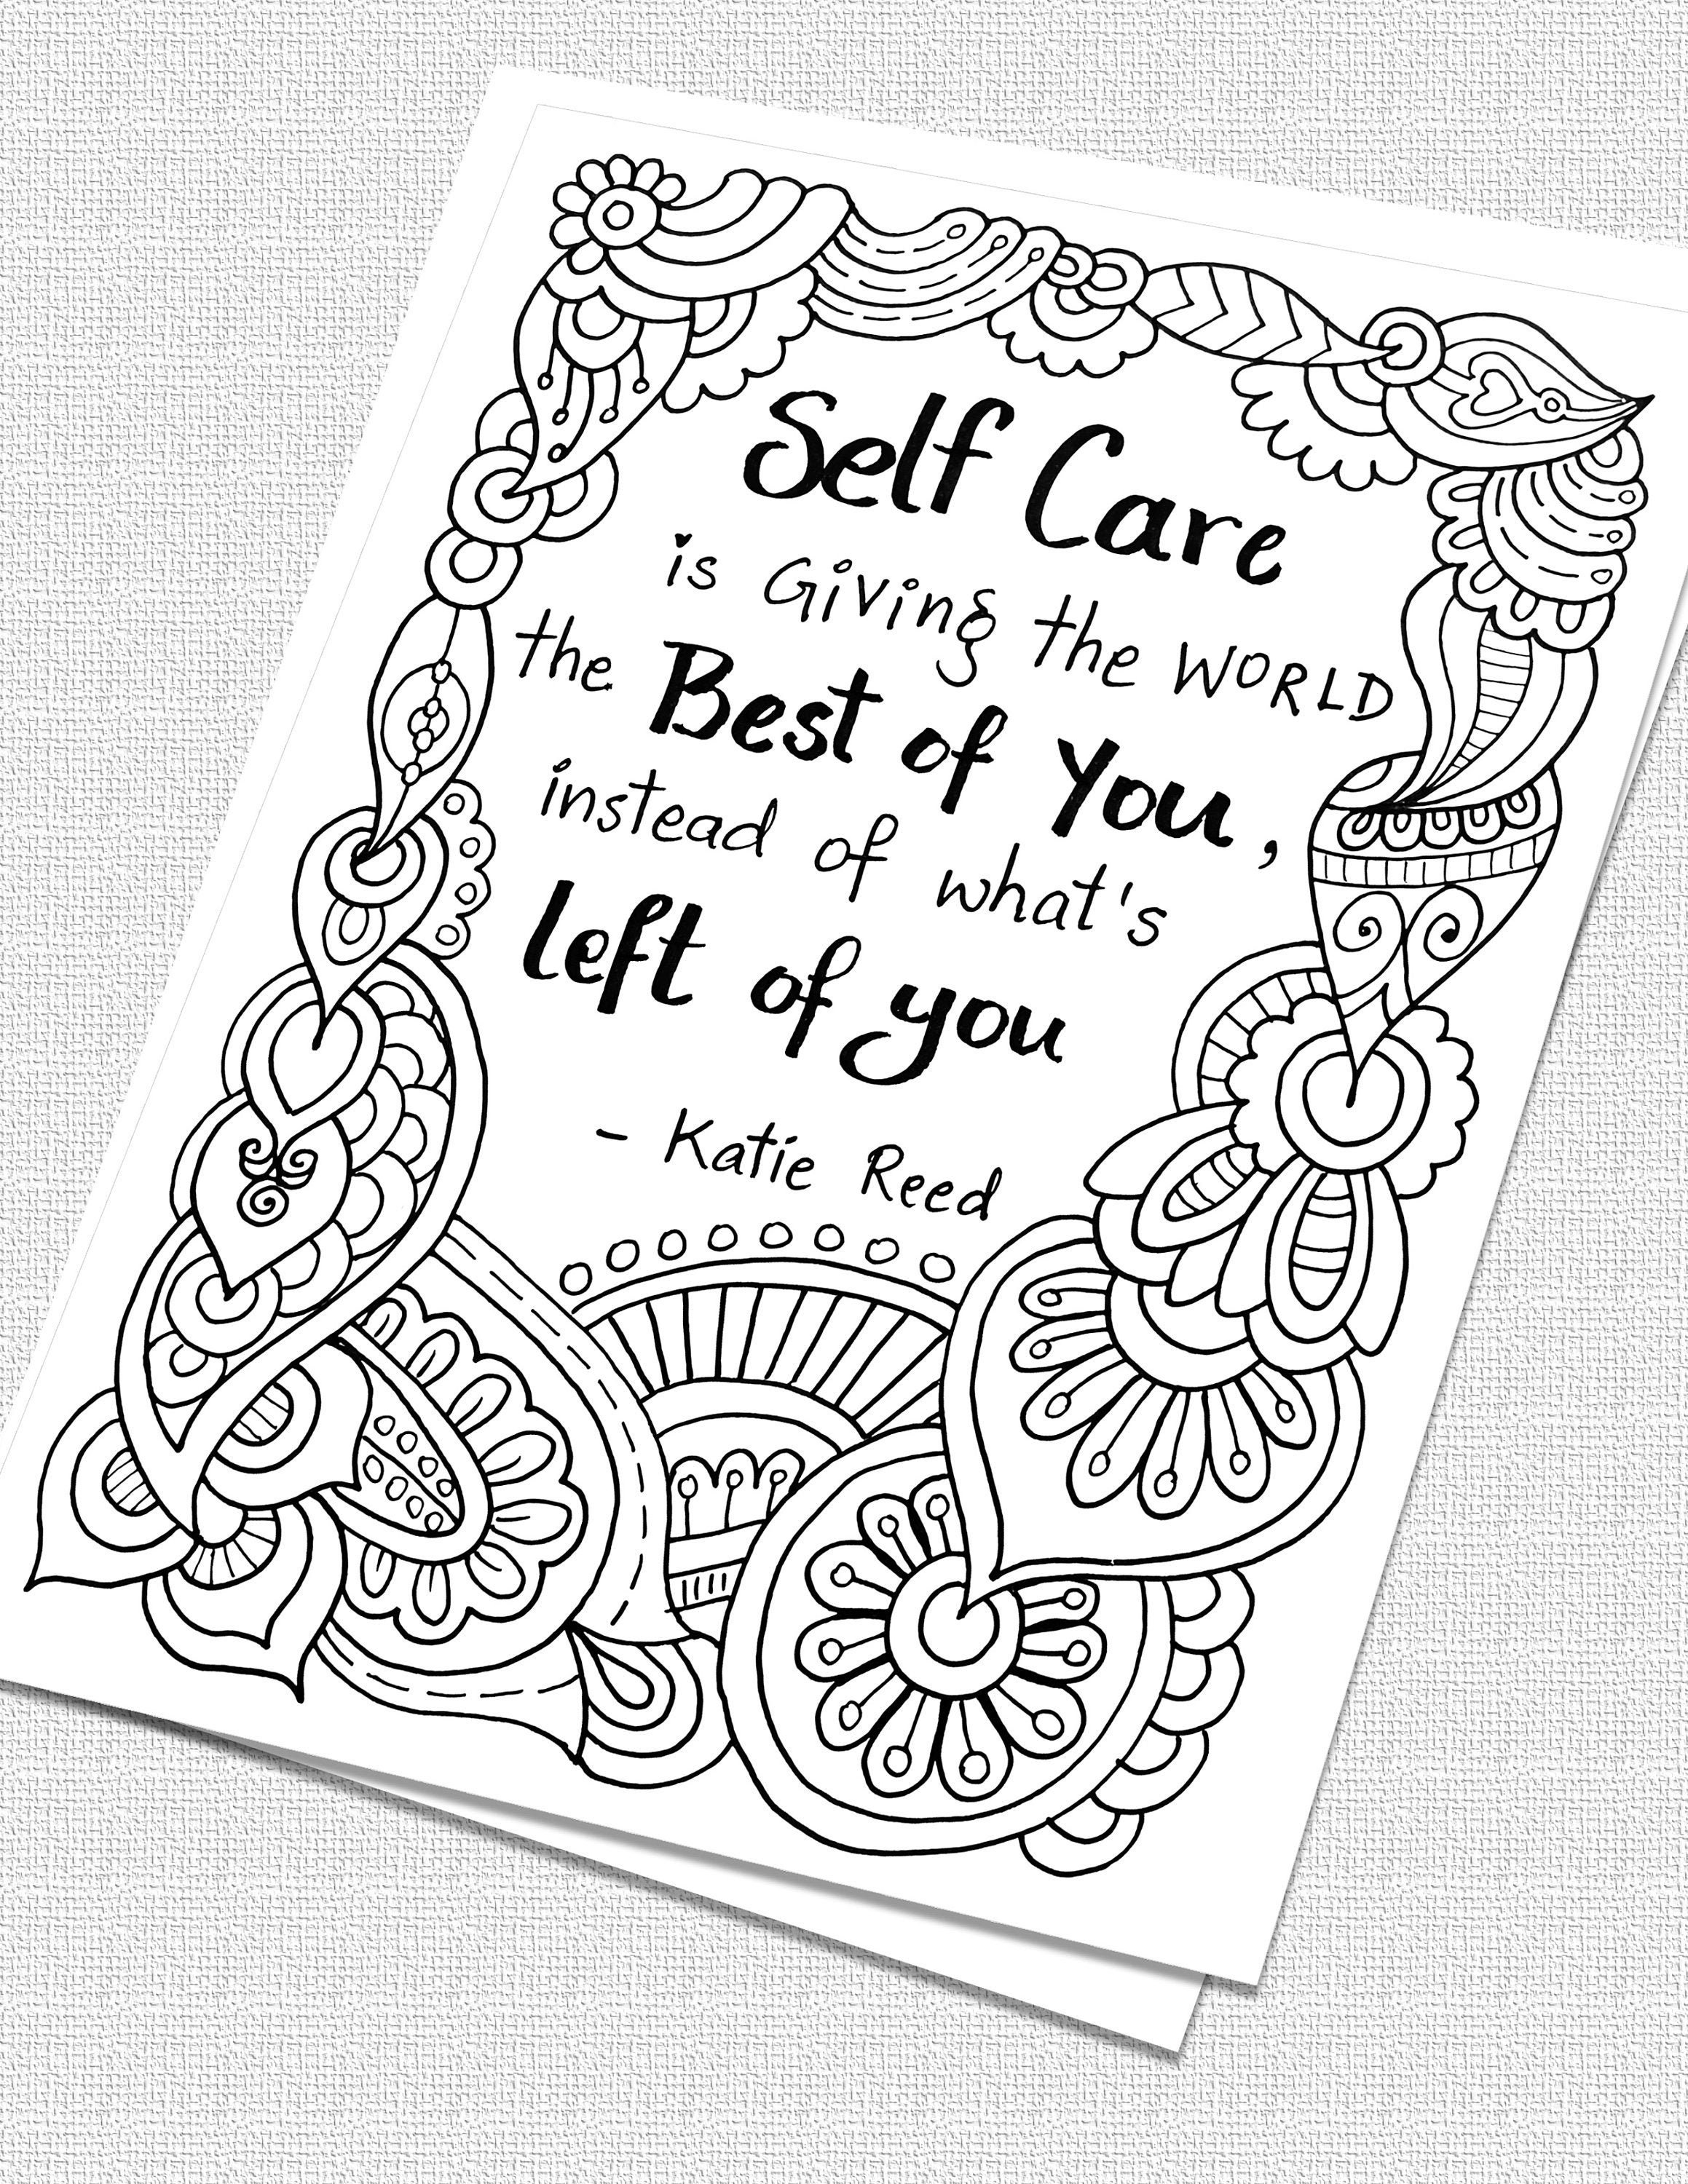 Self Care
is Giving the WORLD
the Best of You,
instead of what's
left of you
- Katie Reed